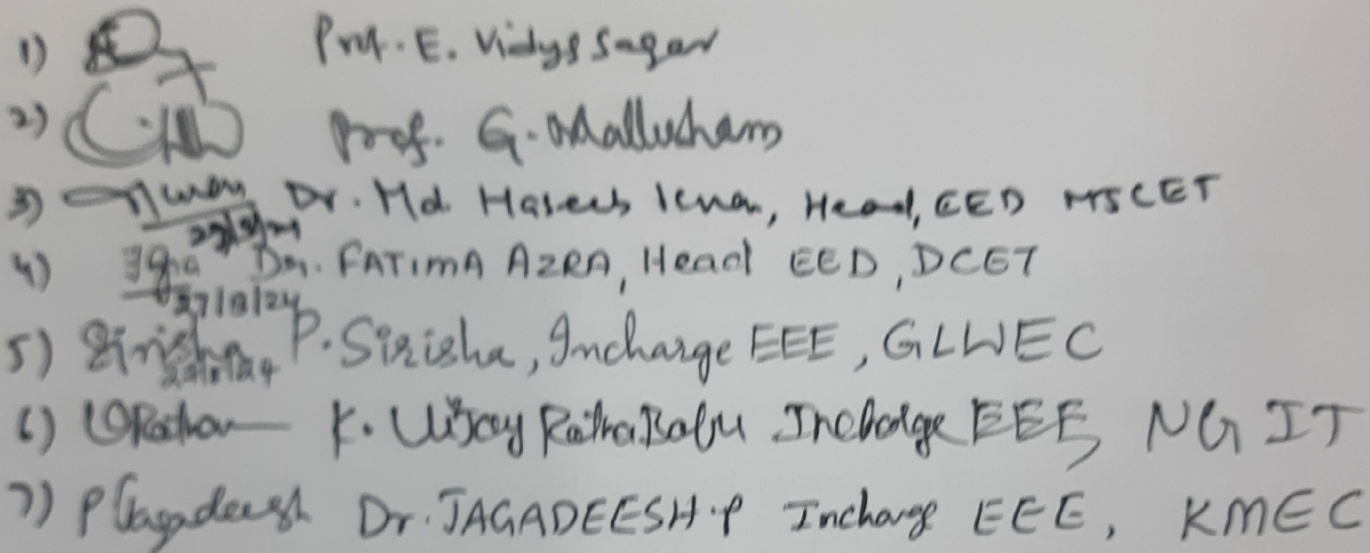 1) Prof. E. Vidya Sagar
2) Prof. G. Mallesham
3) Dr. Md Haseeb Khan, Head, EED MJCET
4) 27/8/24 Dr. FATIMA AZRA, Head EED, DCET
5) Sirisha P. Sirisha, Incharge EEE, GLWEC
6) K. Vijay Ratna Babu Incharge EEE, NGIT
7) P Jagadeesh Dr. JAGADEESH.P Incharge EEE, KMEC